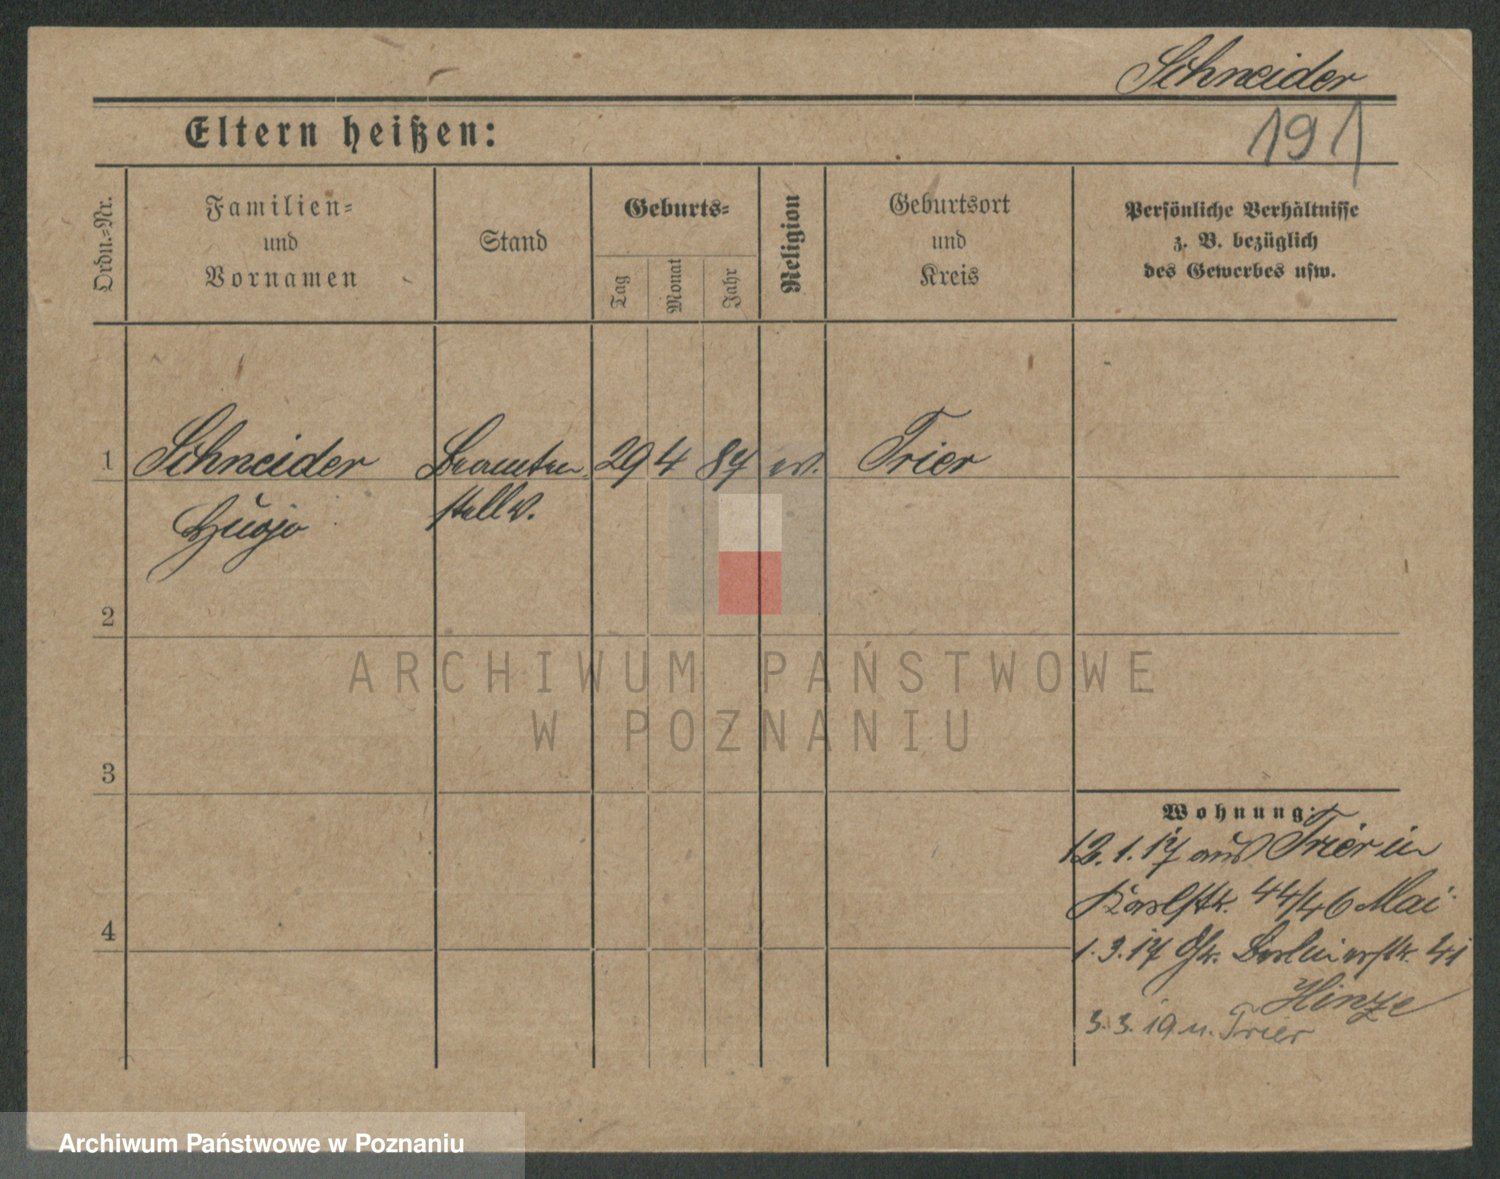 Schneider
191
Eltern heißen:
Ordn.-Nr.
Familien-
und
Vornamen
Stand
Geburts-
Tag
Monat
Jahr
Religion
Geburtsort
und
Kreis
Persönliche Verhältnisse
z. B. bezüglich
des Gewerbes usw.
1 Schneider Beamten 29 4 87 ev. Trier
stellv.
2
3
4
Wohnung:
12.1.17 aus Trier in
44/46 Mai
1.3.17 Gr. Berlinerstr. 41
Hinze
3.3.19 n. Trier
ARCHIWUM PAŃSTWOWE
W POZNANIU
Archiwum Państwowe w Poznaniu